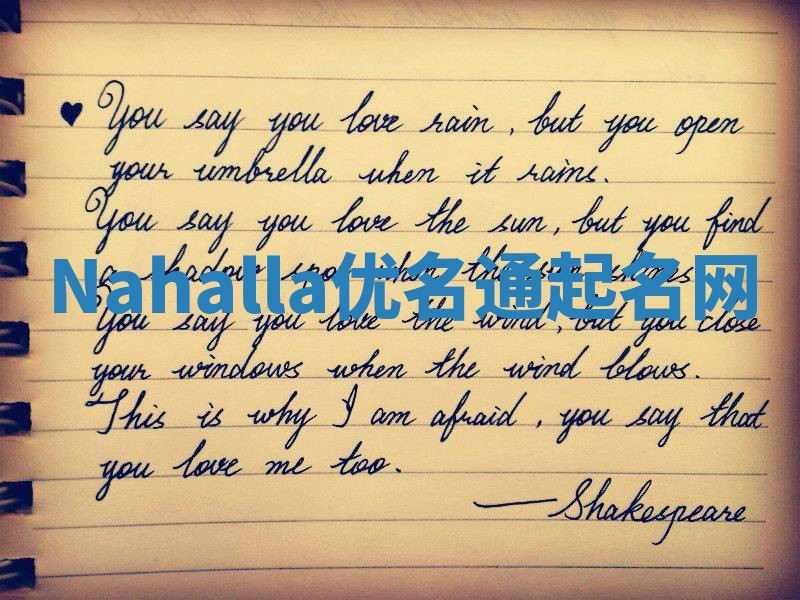 ♥ You say you love rain, but you open
your umbrella when it rains.
You say you love the sun, but you find
a shadow spot when the sun shines
Nahalla优名通起名网
You say you love the wind, but you close
your windows when the wind blows.
This is why I am afraid, you say that
you love me too.
—Shakespeare